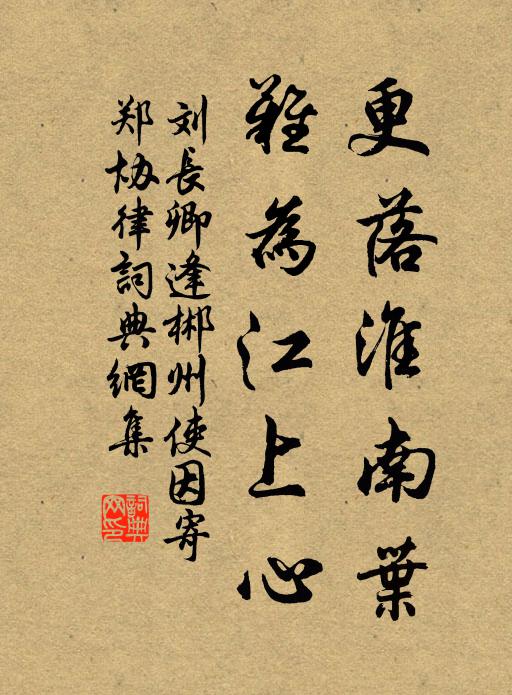 更落淮南葉
難為江上心
刘長卿逢郴州使因寄
郑协律詞典網集
詞典
网印